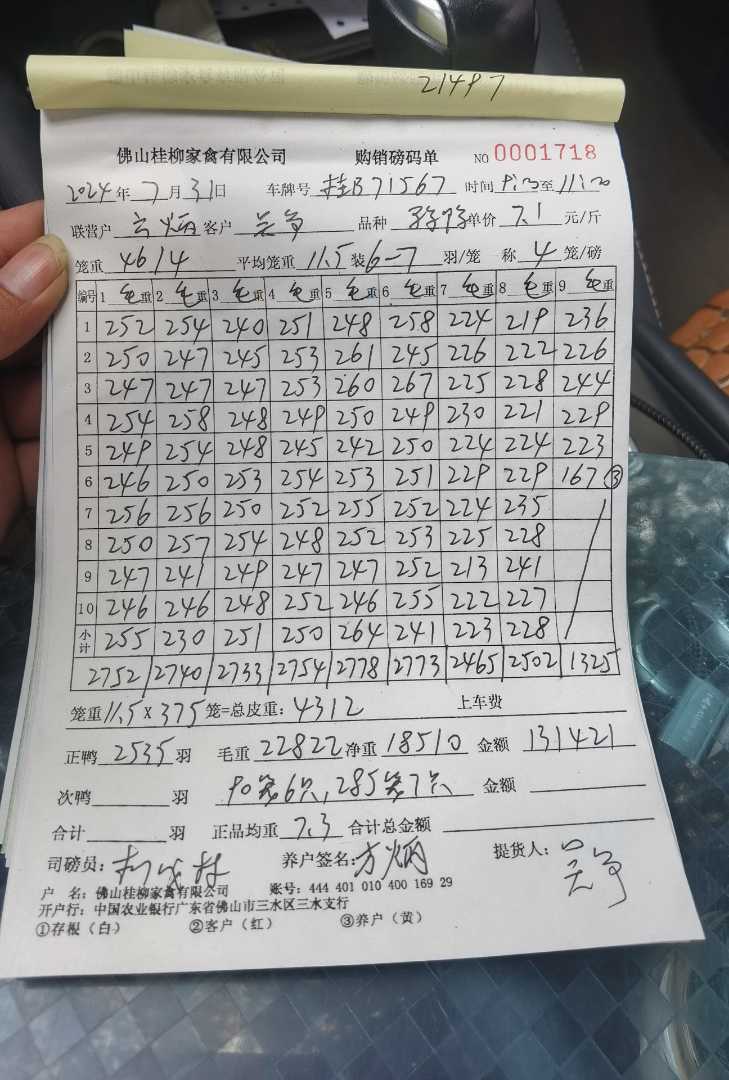 21497
佛山桂柳家禽有限公司 购销磅码单 NO 0001718
2024年7月31日 车牌号 桂B71567 时间 至11:20
联营户 炳 客户 品种 单价 7.1 元/斤
笼重 46/4 平均笼重 11.5 装 6-7 羽/笼 称 4 笼/磅
编号 1 毛重 2 毛重 3 毛重 4 毛重 5 毛重 6 毛重 7 毛重 8 毛重 9 毛重
1 252 254 240 251 248 258 224 219 236
2 250 247 245 253 261 245 226 222 226
3 247 247 247 253 260 267 225 228 244
4 254 258 248 249 250 249 230 221 229
5 249 254 248 245 242 250 224 224 223
6 246 250 253 254 253 251 229 229 167 ③
7 256 256 250 252 255 252 224 235
8 250 257 254 248 252 253 225 228
9 247 241 249 247 247 252 213 241
10 246 246 248 252 246 255 222 227
小计 255 230 251 250 264 241 223 228
2752 2740 2733 2754 2778 2773 2465 2502 1325
笼重 11.5 X 375 笼=总皮重: 4312 上车费
正鸭 2535 羽 毛重 22822 净重 18510 金额 131421
次鸭 羽 90笼6只, 285笼7只 金额
合计 羽 正品均重 7.3 合计总金额
司磅员: 养户签名: 方炳 提货人:
户 名: 佛山桂柳家禽有限公司 账号: 444 401 010 400 169 29
开户行: 中国农业银行广东省佛山市三水区三水支行
①存根（白） ②客户（红） ③养户（黄）